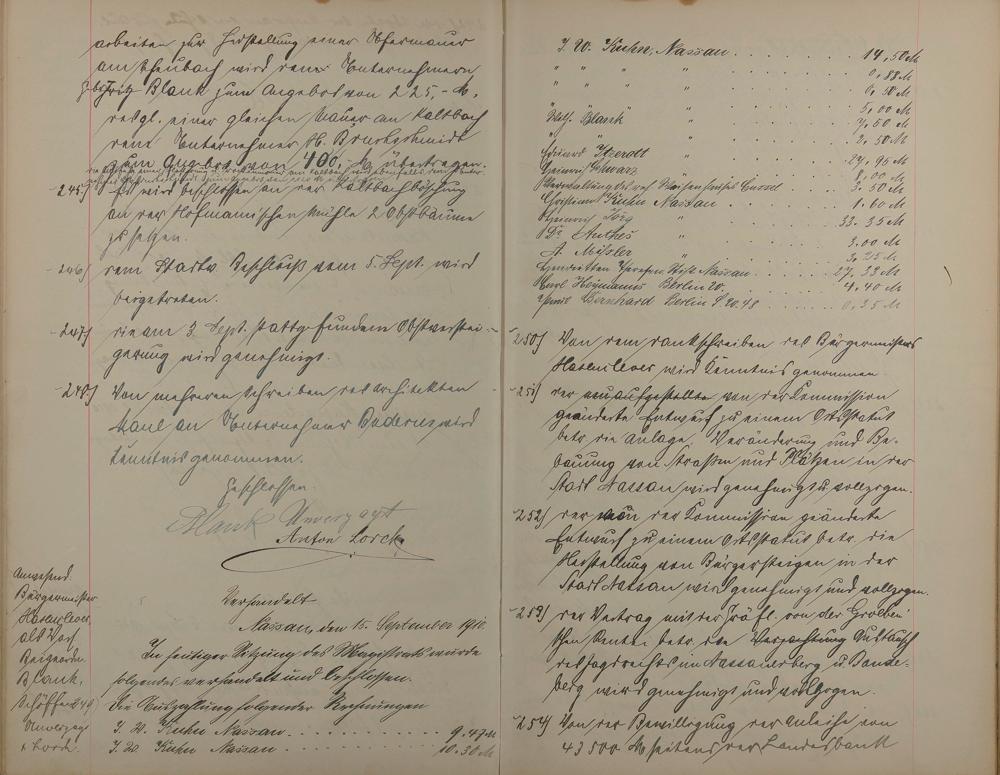 arbeiten zur Herstellung einer Ufermauer
am Scheubach wird dem Unternehmern
Fritz Blank zum Angebot von 225,- M,
desgl. einer gleichen Mauer am Kaltbach
dem Unternehmer H. Bruchschmidt
zum Angebot von 400,- M übertragen.
245) Es wird beschlossen an der Kaltbachböschung
an der Hofmannischen Mühle 2 Obstbäume
zu setzen.
246) dem Stadtv. Beschluß vom 5. Sept. wird
beigetreten.
247) die am 3. Sept. stattgefundene Obstverstei-
gerung wird genehmigt.
248) Von mehreren Schreiben des Architekten
Maul an Unternehmer Baderus wird
Kenntnis genommen.
Geschlossen.
Blank Unverzagt
Anton Lorch
Anwesend:
Bürgermeister
Hasenclever
als Vors.
Beigeordn.
Blank,
Schöffen
Unverzagt
u. Lorch.
Verhandelt
Nassau, den 15. September 1910.
In heutiger Sitzung des Magistrats wurde
folgendes verhandelt und beschlossen.
249) Die Auszahlung folgender Rechnungen
J. W. Kuhn Nassau 9,47 M
J. W. Kuhn Nassau 10,30 M
J. W. Kuhn, Nassau 14,50 M
" " " " 0,88 M
" " " " 0,50 M
" 5,00 M
Wilh. Blank " 7,50 M
" " " 2,50 M
Eduard Itzerott " 24,95 M
Heinrich Schwarz 8,00 M
Verwaltung Cassel 3,50 M
Christian Kuhn Nassau 1,60 M
Heinrich Jörg " 33,35 M
Dr. Anthes " 3,00 M
A. Misler " 3,25 M
Nassau 27,33 M
Carl Heymanns Berlin 20. 4,40 M
Bernhard Berlin S 20. 48 0,35 M
250) Von dem Dankschreiben des Bürgermeisters
Hasenclever wird Kenntnis genommen
251) der von der Kommission
geänderte Entwurf zu einem Ortsstatut
betr. die Anlage, Veränderung und Be-
bauung von Straßen und Plätzen in der
Stadt Nassau wird genehmigt u. vollzogen.
252) der von der Kommission geänderte
Entwurf zu einem Ortsstatut betr. die
Herstellung von Bürgersteigen in der
Stadt Nassau wird genehmigt und vollzogen.
253) der Vertrag mit der Gräfl. von der Groeben'
schen Rentei betr. den Austausch
des Jagdrechts im Nassauerberg u.
berg wird genehmigt und vollzogen.
254) Von der Bewilligung der Anleihe von
43500 M seitens der Landesbank